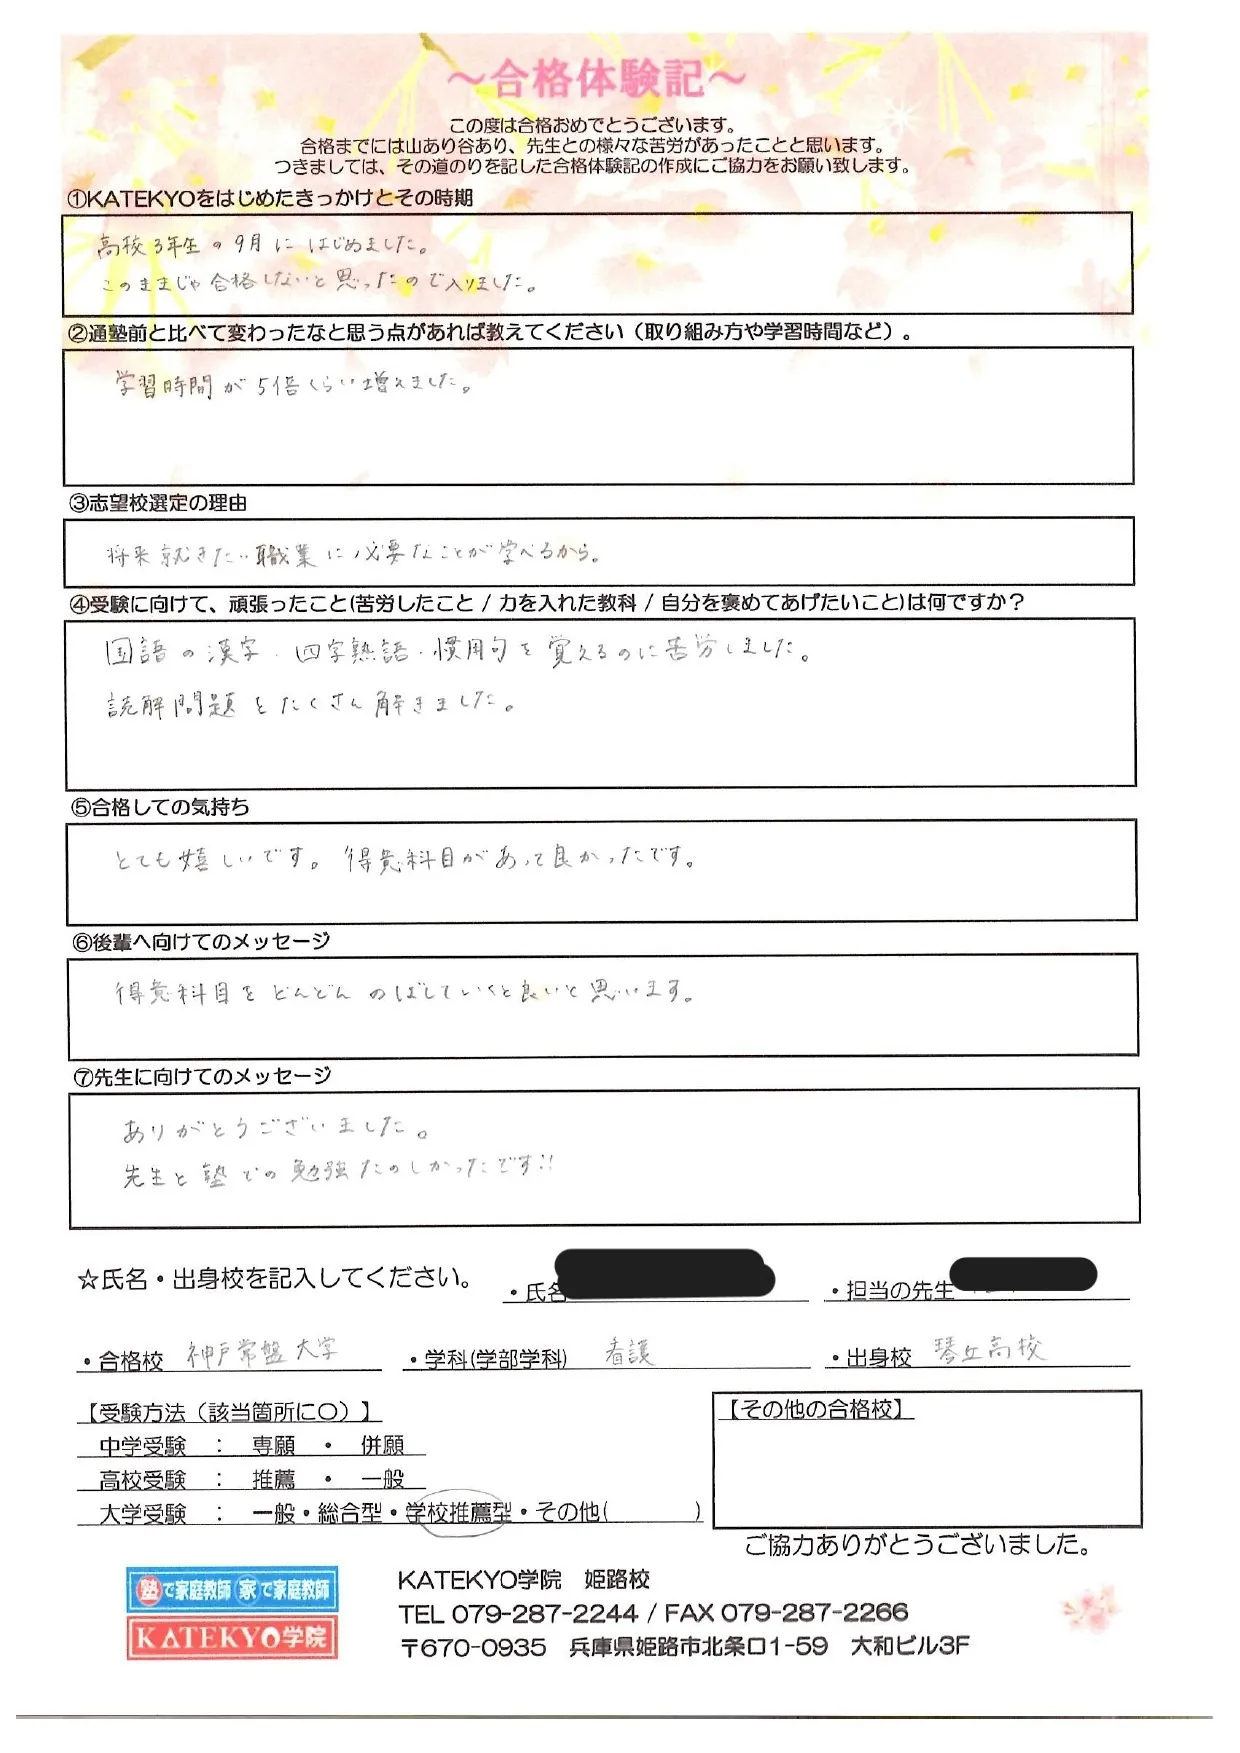 ～合格体験記～
この度は合格おめでとうございます。
合格までには山あり谷あり、先生との様々な苦労があったことと思います。
つきましては、その道のりを記した合格体験記の作成にご協力をお願い致します。
①KATEKYOをはじめたきっかけとその時期
高校3年生の9月にはじめました。
このままじゃ合格しないと思ったので入りました。
②通塾前と比べて変わったなと思う点があれば教えてください（取り組み方や学習時間など）。
学習時間が5倍くらい増えました。
③志望校選定の理由
将来就きたい職業に必要なことが学べるから。
④受験に向けて、頑張ったこと(苦労したこと / 力を入れた教科 / 自分を褒めてあげたいこと)は何ですか？
国語の漢字・四字熟語・慣用句を覚えるのに苦労しました。
読解問題をたくさん解きました。
⑤合格しての気持ち
とても嬉しいです。得意科目があって良かったです。
⑥後輩へ向けてのメッセージ
得意科目をどんどんのばしていくと良いと思います。
⑦先生に向けてのメッセージ
ありがとうございました。
先生と塾での勉強たのしかったです!!
☆氏名・出身校を記入してください。 ・氏名 ・担当の先生
・合格校 神戸常盤大学 ・学科(学部学科) 看護 ・出身校 琴丘高校
【受験方法（該当箇所に〇）】 【その他の合格校】
中学受験 ： 専願 ・ 併願
高校受験 ： 推薦 ・ 一般
大学受験 ： 一般・総合型・学校推薦型・その他( )
ご協力ありがとうございました。
塾で家庭教師 家で家庭教師
KATEKYO学院
KATEKYO学院 姫路校
TEL 079-287-2244 / FAX 079-287-2266
〒670-0935 兵庫県姫路市北条口1-59 大和ビル3F